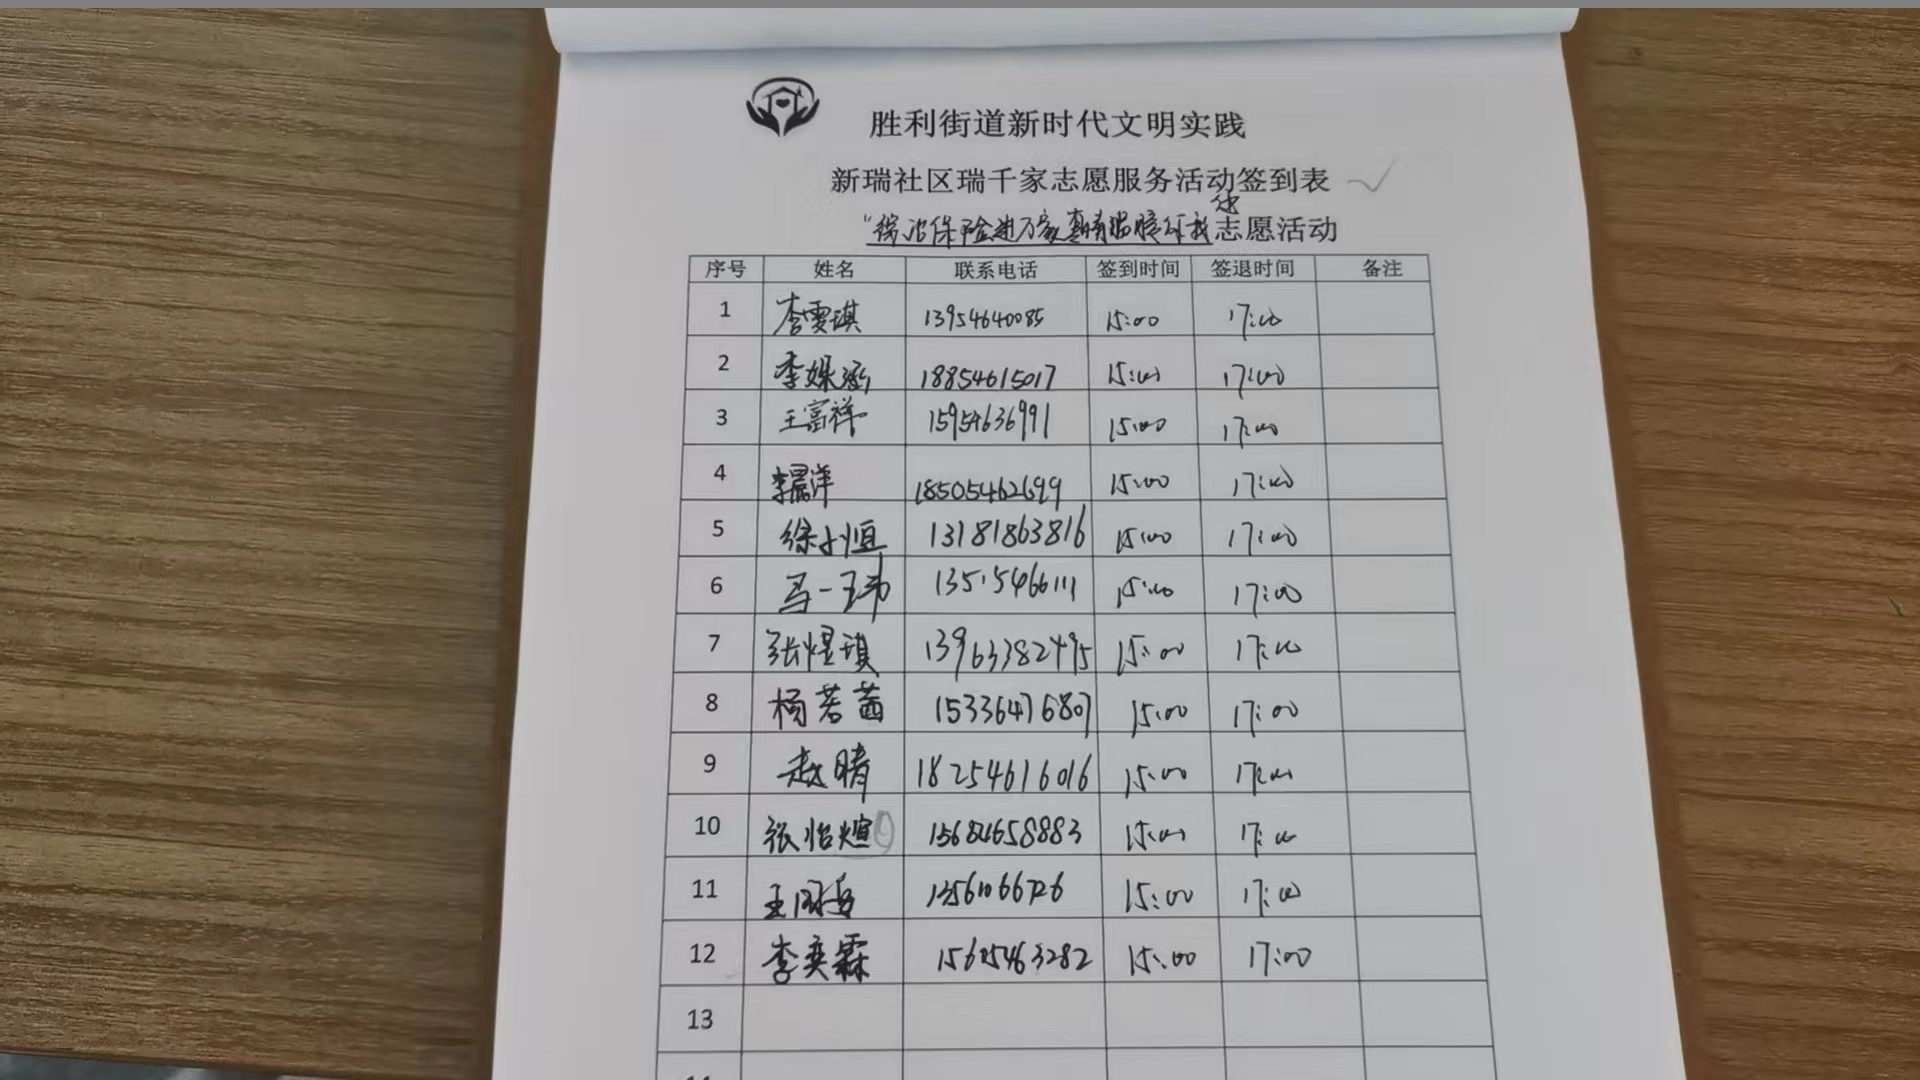 胜利街道新时代文明实践
新瑞社区瑞千家志愿服务活动签到表
保险进万家真情 志愿活动
序号 姓名 联系电话 签到时间 签退时间 备注
1 李雯琪 13954640085 15:00 17:00
2 李 涵 18854615017 15:00 17:00
3 王富祥 15954636991 15:00 17:00
4 李晨洋 18505462699 15:00 17:00
5 徐小恒 13181863816 15:00 17:00
6 马一玮 13515466111 15:00 17:00
7 张煜琪 13963382495 15:00 17:00
8 杨若茜 15336476807 15:00 17:00
9 赵晴 18254616016 15:00 17:00
10 张怡煊 15684658883 15:00 17:00
11 王 15:00 17:00
12 李奕霖 15605463282 15:00 17:00
13